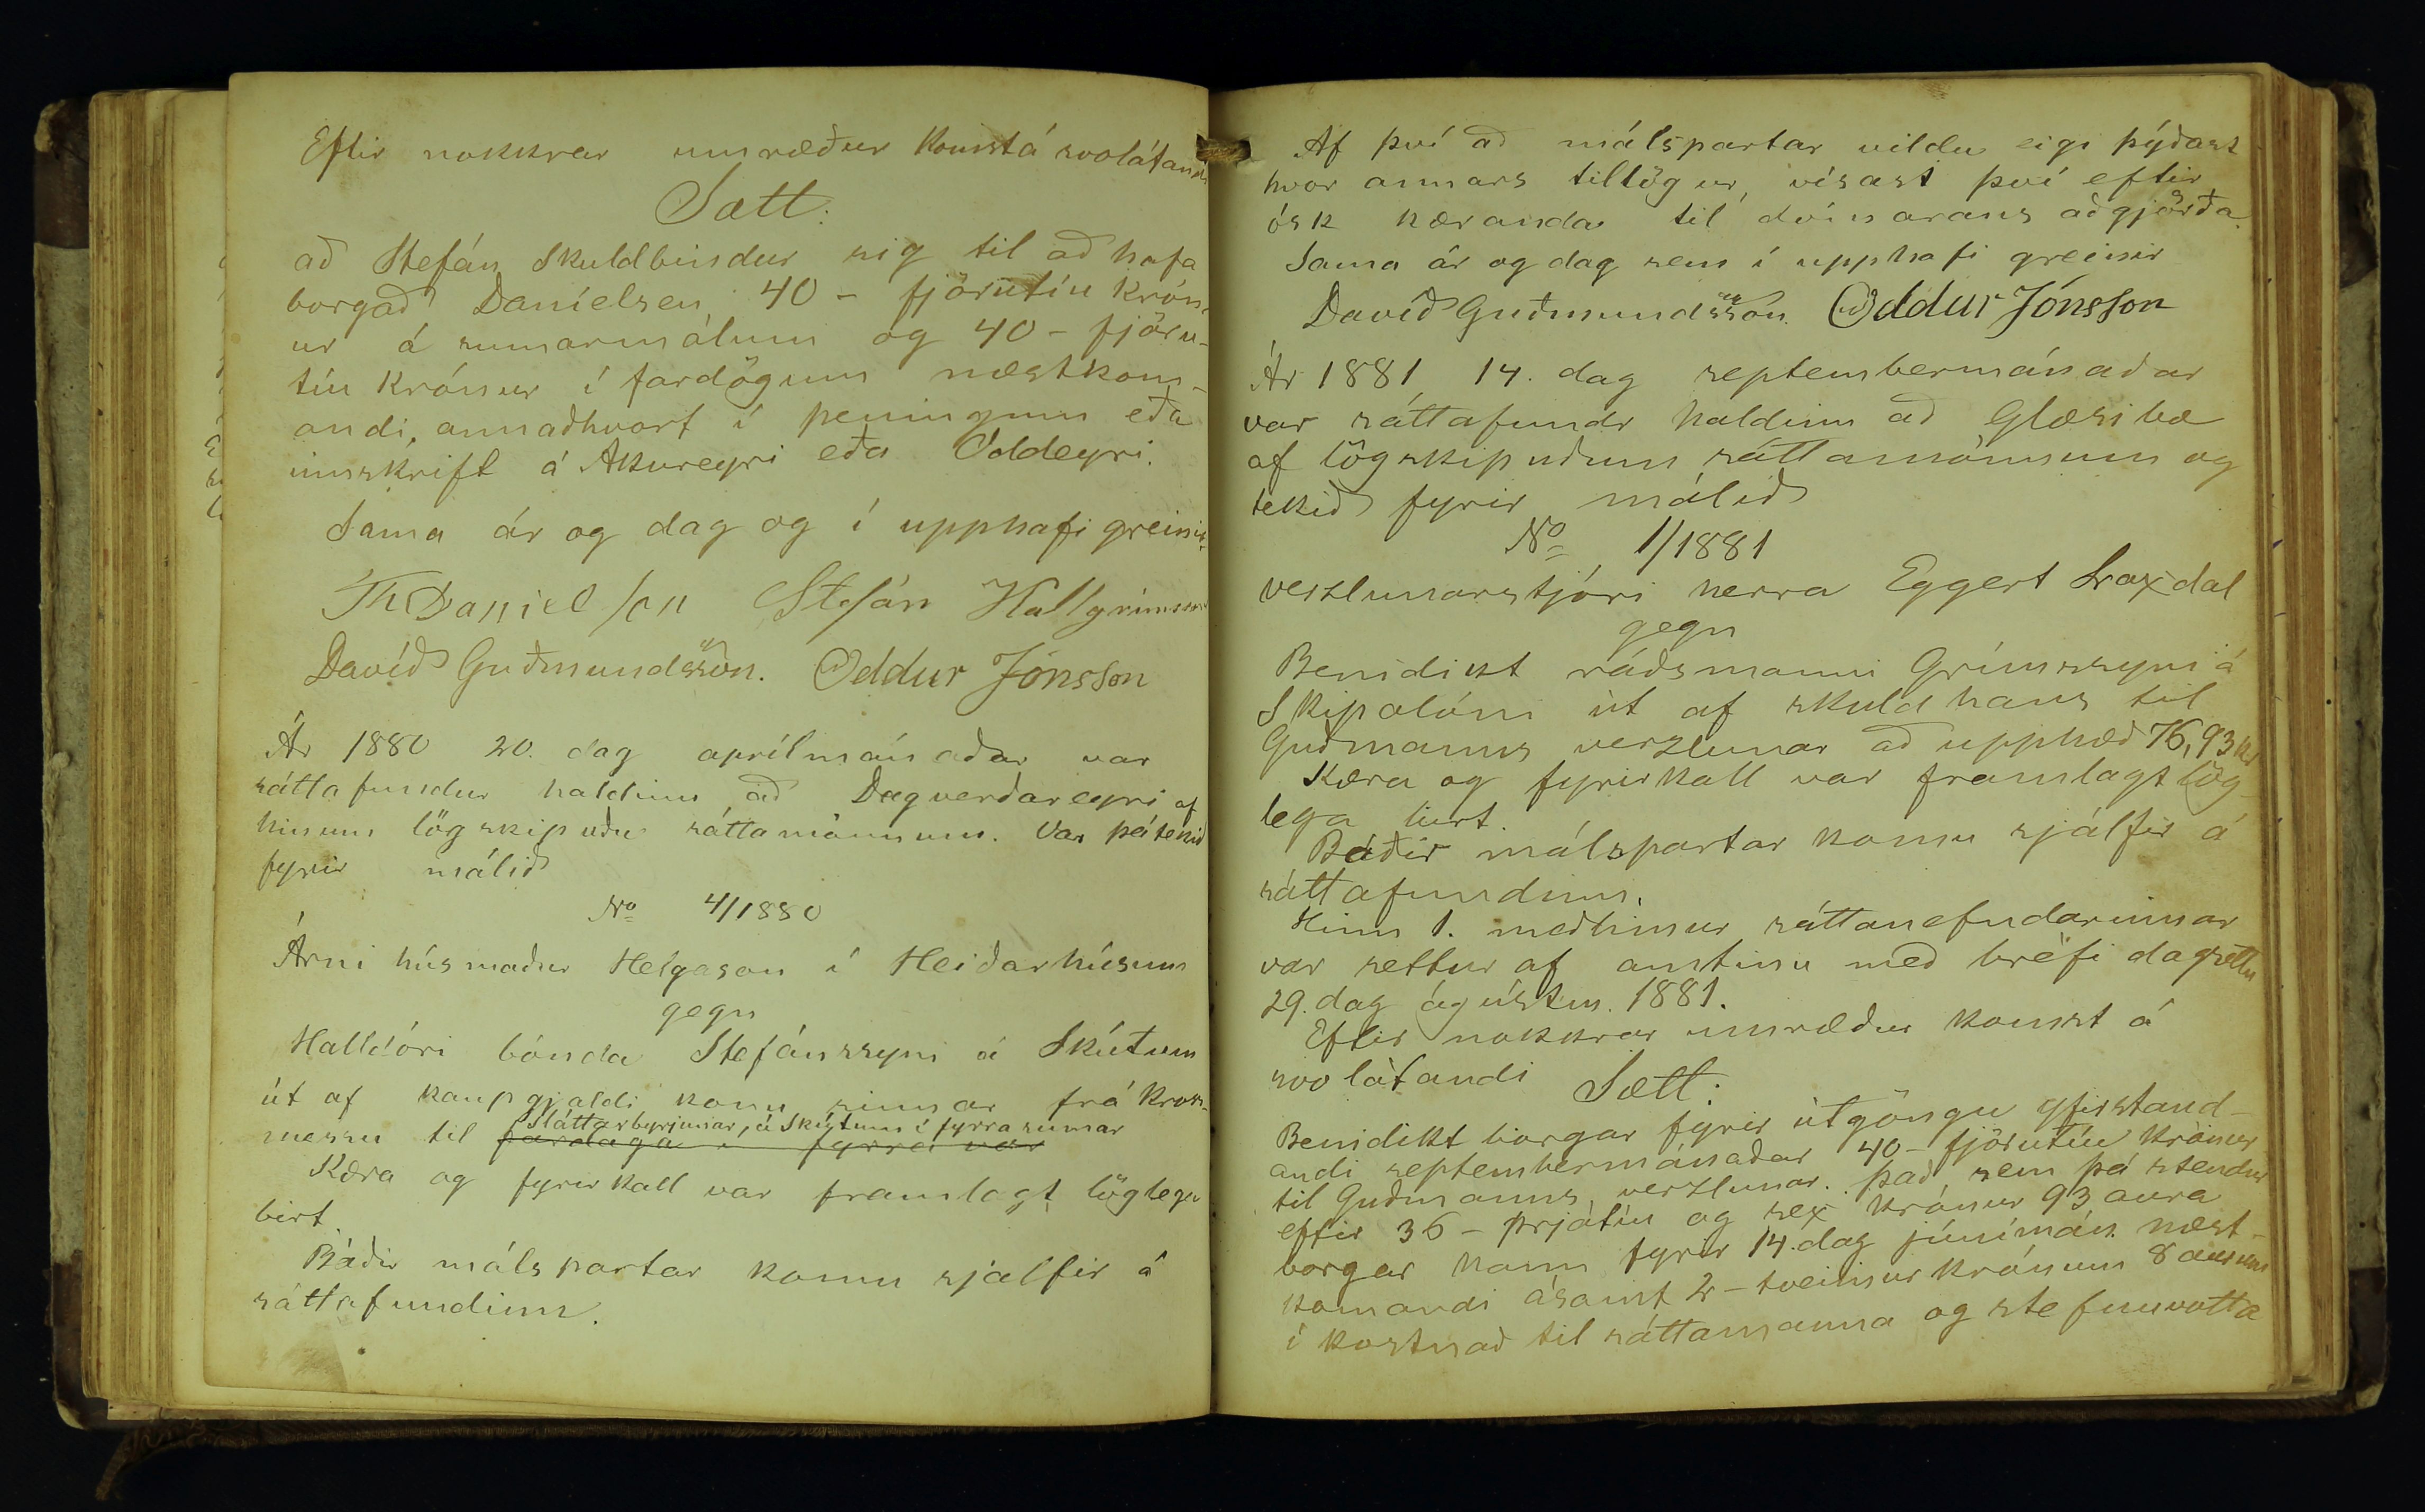 Eftir nokkrar umræður komst á svolátandi
Sætt:
að Stefán skuldbindur sig til að hafa
borgað Danielsen 40 - fjörutíu krón-
ur á sumarmálum og 40 - fjöru-
tíu krónur í fardögum næstkom-
andi, annaðhvort í peningum eða
innskrift á Akureyri eða Oddeyri.
Sama ár og dag og í upphafi greinir.
Th Danielsen Stefán Hallgrímsson
Davíð Guðmundsson. Oddur Jónsson
Ár 1880 20. dag aprílmánaðar var
sáttafundur haldinn að Dagverðareyri af
hinum lögskipuðu sáttamönnum. Var þá tekið
fyrir málið
No 4/1880
Árni húsmaður Helgason í Heiðarhúsum
gegn
Halldóri bónda Stefánssyni á Skútum
út af kaupgjaldi konu sinnar frá kross-
sláttarbyrjunar, á Skútum í fyrra sumar
messu til fardaga í fyrra vor
Kæra og fyrirkall var framlagt löglega
birt.
Báðir málspartar komu sjálfir á
sáttafundinn.
Af því að málspartar vildu eigi þýðast
hvor annars tillögur, vísast því eftir
ósk kæranda til dómarans aðgjörða.
Sama ár og dag sem í upphafi greinir
Davíð Guðmundsson. Oddur Jónsson
Ár 1881, 14. dag septembermánaðar
var sáttafundr haldinn að Glæsibæ
af lögskipuðum sáttamönnum og
tekið fyrir málið
No 1/1881
verzlunarstjóri herra Eggert Laxdal
gegn
Benidikt ráðsmanni Grímssyni á
Skipalóni út af skuld hans til
Guðmanns verzlunar að upphæð 76,93 kr
Kæra og fyrirkall var framlagt lög-
lega birt.
Báðir málspartar komu sjálfir á
sáttafundinn.
Hinn 1. meðlimur sáttanefndarinnar
var settur af amtinu með bréfi dagsettu
29. dag ágústm. 1881.
Eftir nokkrar umræður komst á
svo látandi Sætt:
Benidikt borgar fyrir útgöngu yfirstand-
andi septembermánaðar 40 - fjörutíu krónur
til Guðmanns verzlunar. það, sem þá stendur
eftir 36 - þrjátíu og sex krónur 93 aura
borgar hann fyrir 14. dag júnímán. næst-
komandi ásamt 2 - tveimur krónum 8 aurum
í kostnað til sáttamanna og stefnuvotta